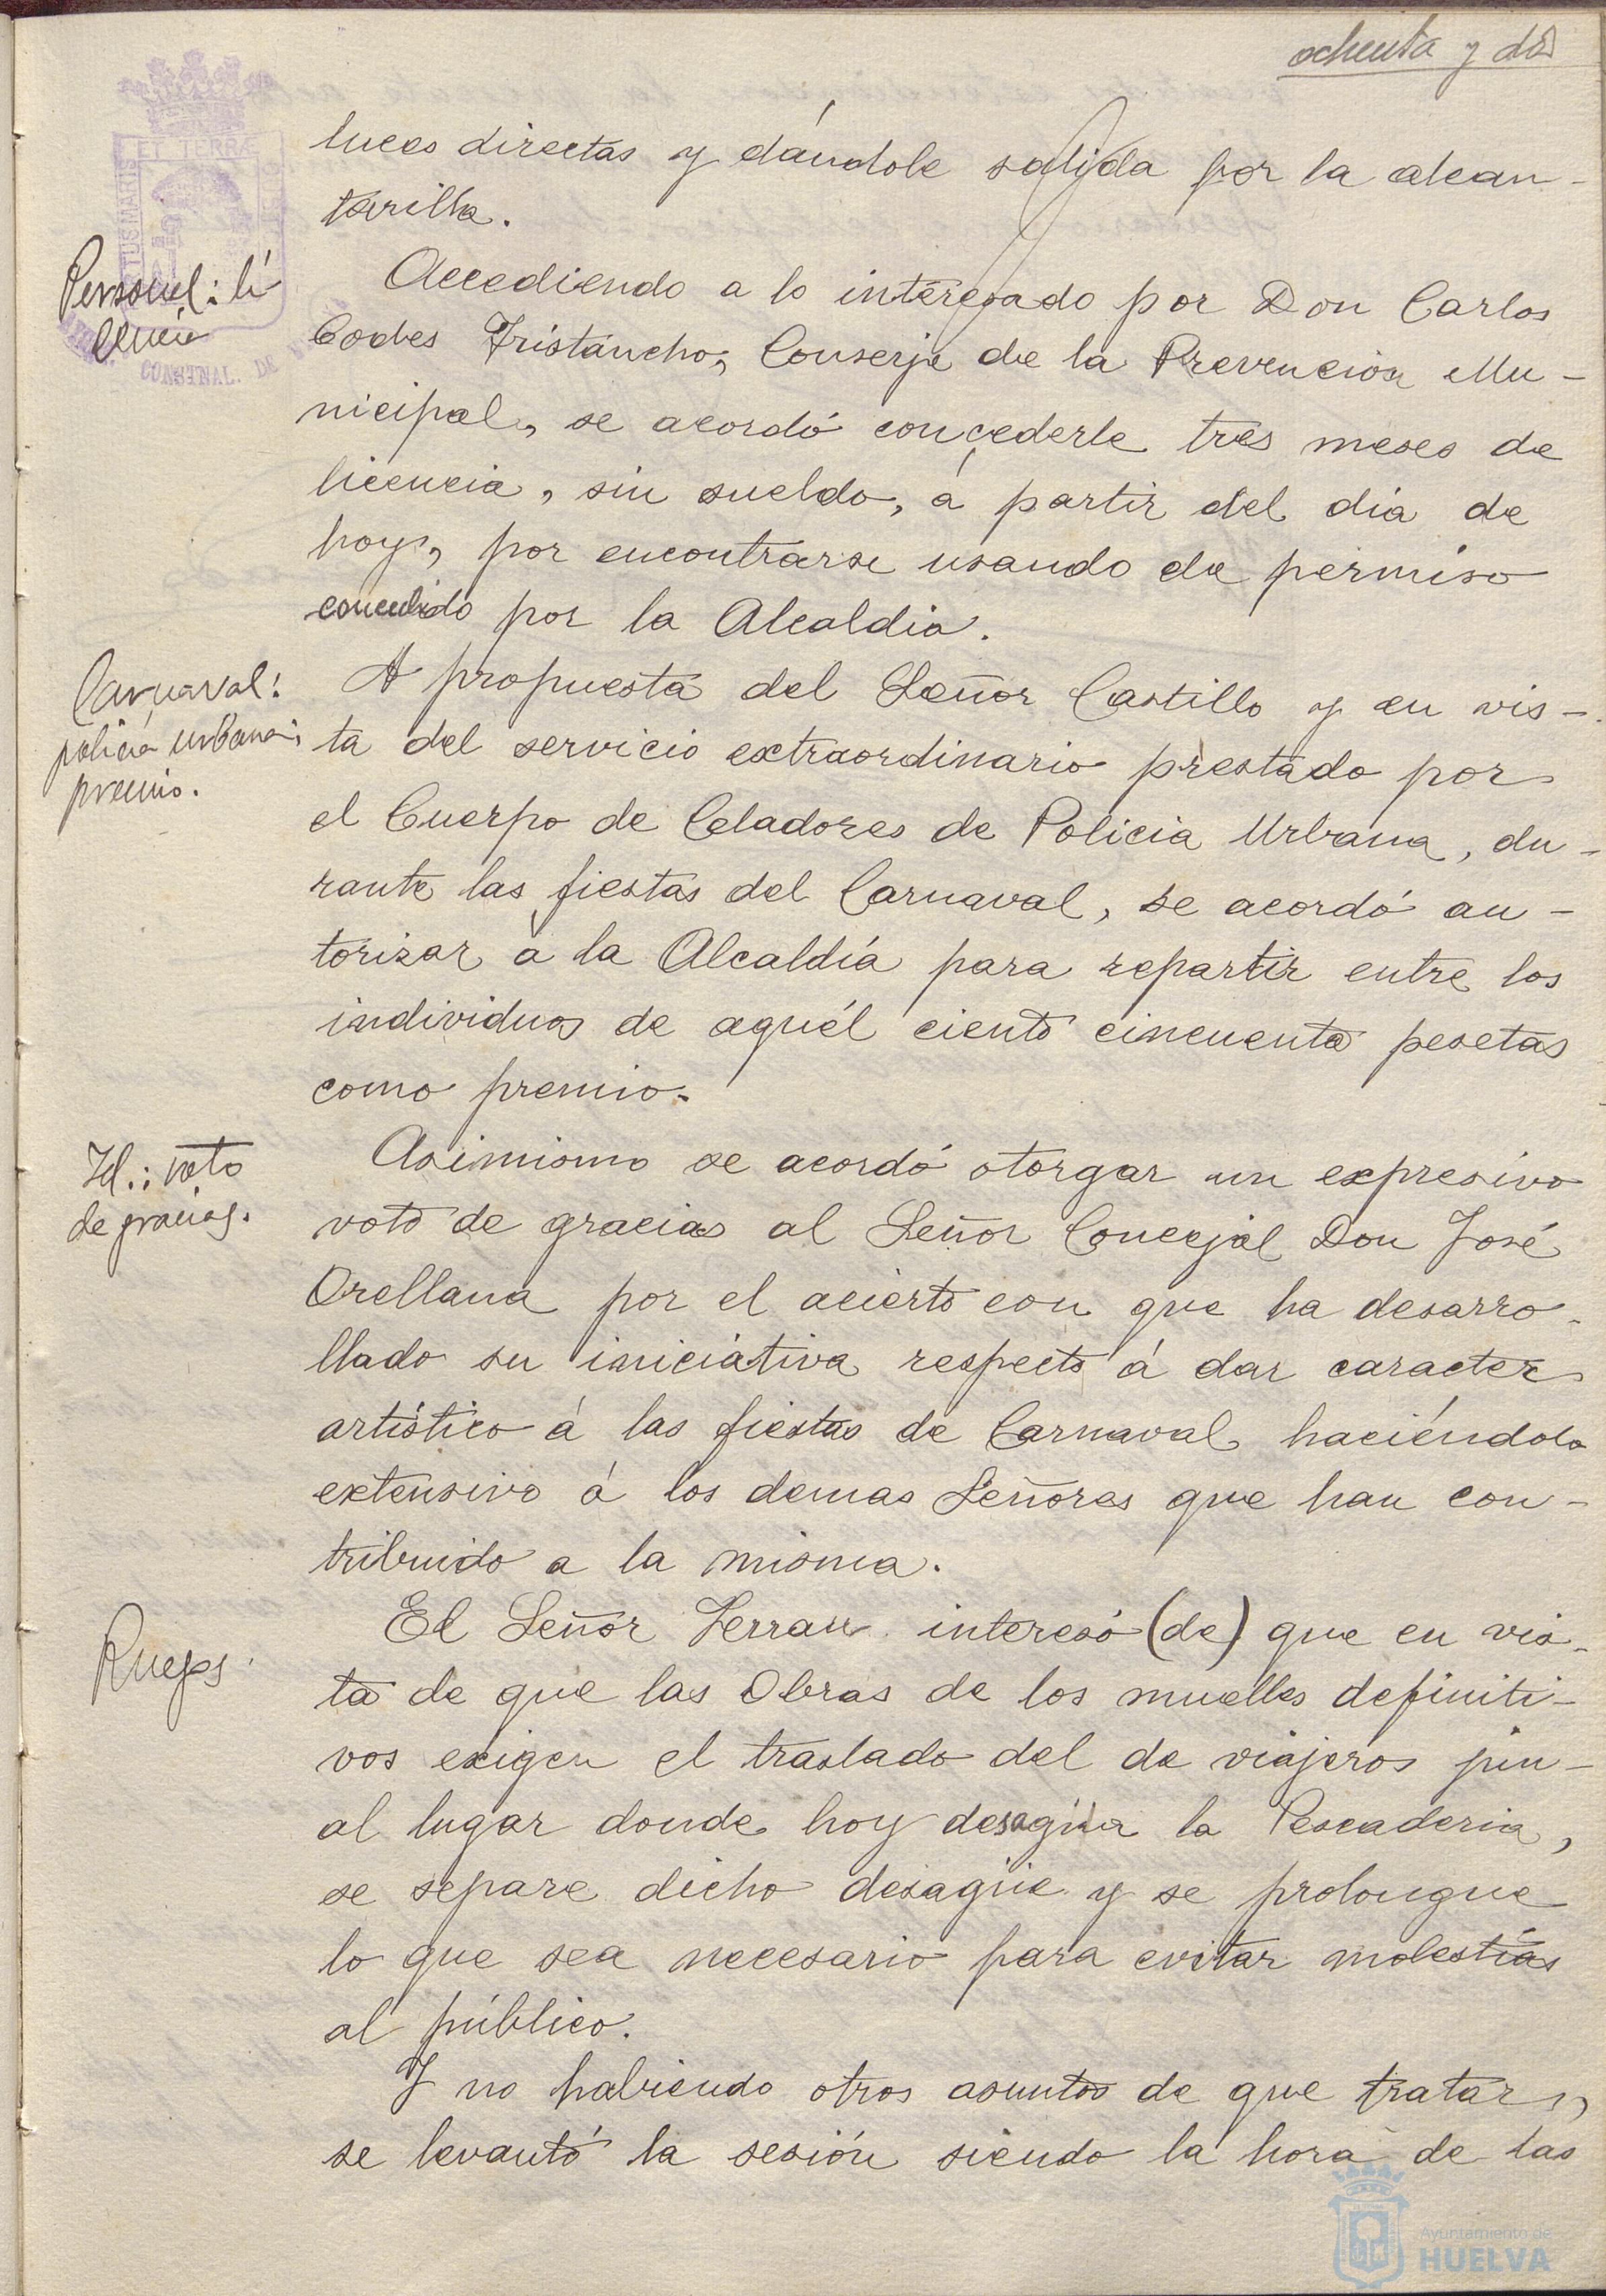 ochenta y dos
luces directas y dándole salida por la alcan-
tarilla.
Personal: li-
cencia
Accediendo a lo interesado por Don Carlos
Codes Tristancho, Conserje de la Prevencion Mu-
nicipal, se acordó concederle tres meses de
licencia, sin sueldo, á partir del dia de
hoy, por encontrarse usando de permiso
concedido por la Alcaldia.
Carnaval:
policia urbana;
premio.
A propuesta del Señor Castillo y en vis-
ta del servicio extraordinario prestado por
el Cuerpo de Celadores de Policia Urbana, du-
rante las fiestas del Carnaval, se acordó au-
torizar a la Alcaldía para repartir entre los
individuos de aquél ciento cincuenta pesetas
como premio.
Id.: voto
de gracias.
Asimismo se acordó otorgar un expresivo
voto de gracias al Señor Concejal Don José
Orellana por el acierto con que ha desarro-
llado su iniciativa respecto á dar caracter
artístico á las fiestas de Carnaval haciéndolo
extensivo á los demas Señores que han con-
tribuido a la misma.
Ruegos
El Señor Terran interesó (de) que en vis-
ta de que las Obras de los muelles definiti-
vos exigen el traslado del de viajeros jun-
al lugar donde hoy desagua la Pescaderia,
se separe dicho desagüe y se prolongue
lo que sea necesario para evitar molestias
al público.
Y no habiendo otros asuntos de que tratar,
se levantó la sesión siendo la hora de las
ET TERRÆ
Ayuntamiento de
HUELVA